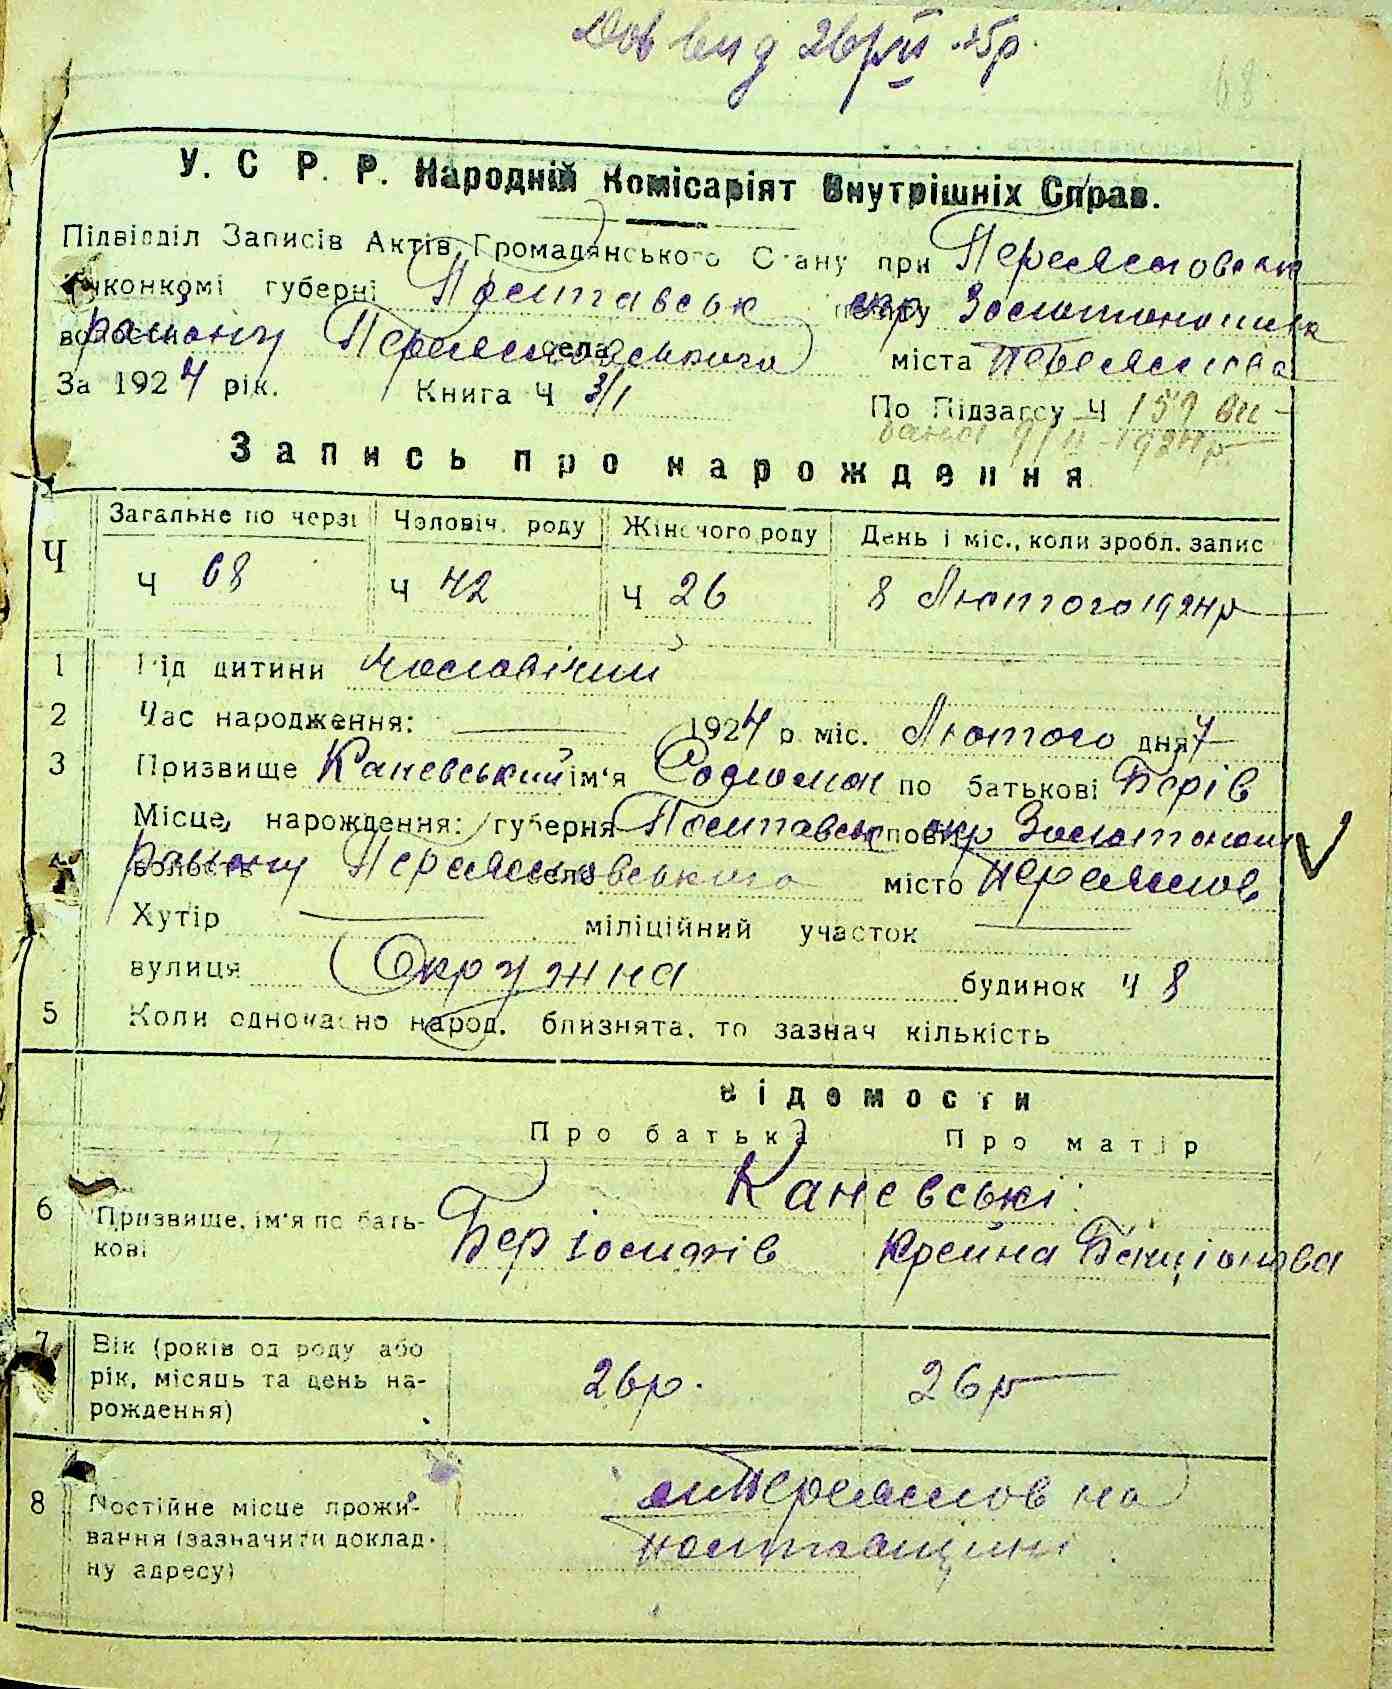 Дов вид 26/VI 25р.
68
У. С Р. Р. Народній Комісаріят Внутрішніх Справ.
Підвідділ Записів Актів Громадянського Стану при Переяславськ
виконкомі губерні Полтавськ повіту окр Золотоношськ
волости району Переяславського села міста Переяслова
За 1924 рік. Книга Ч 3/1 По Підзагсу Ч 159 ви-
дано 9/II-1924р
Запис про нарождення
Ч Загальне по черзі Чоловіч. роду Жіночого роду День і міс., коли зробл. запис
Ч 68 Ч 42 Ч 26 8 Лютого 1924р
1 Рід дитини Чоловічий
2 Час народження: 1924 р. міс. Лютого дня 7
3 Призвище Каневський ім'я Соломон по батькові Берів
4 Місце нарождення: губерня Полтавськ повіт окр Золотонош
волость району Переясловського село місто Переяслов
Хутір міліційний участок
вулиця Окружна будинок ч 8
5 Коли одночасно народ. близнята, то зазнач кількість
Відомости
Про батька Про матір
Каневські:
6 Призвище, ім'я по бать-
кові Бер Іосипів Крейна Бенціонова
7 Вік (років од роду або
рік, місяць та день на-
рождення) 26р. 26р
8 Постійне місце прожи-
вання (зазначити доклад-
ну адресу) м Переяслов на
Полтавщині